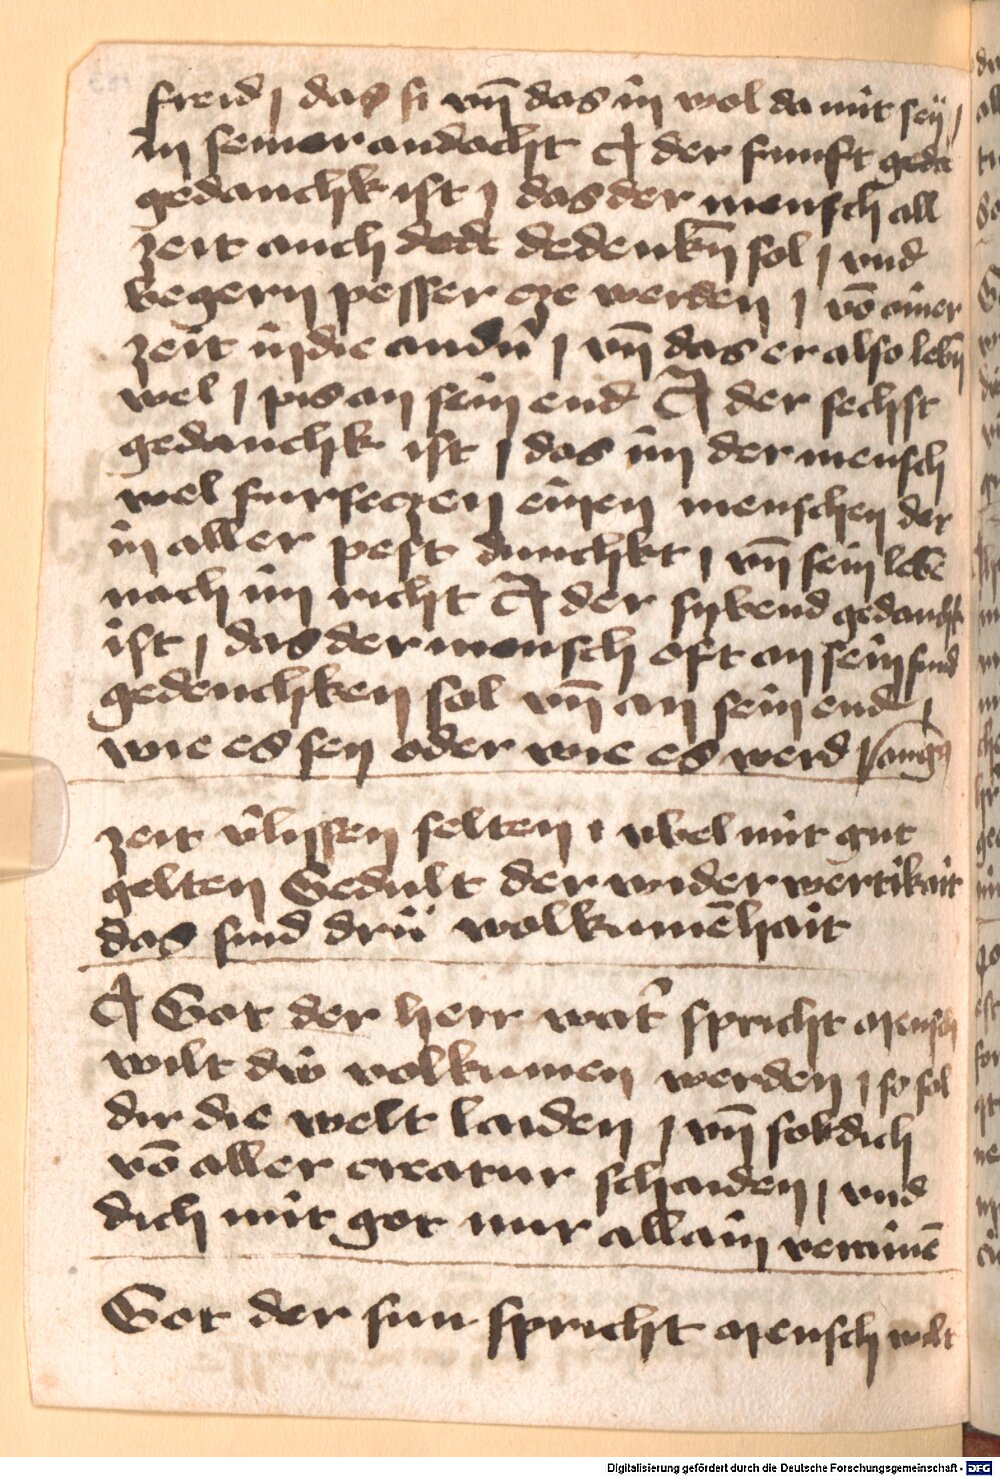 freid / das si vn̄ das im wol da mit seÿ /
in seiner andacht ¶ der funft gede
gedanchk ist / das der mensch all
zeit auch dedt dedenkn̄ sol / vnd
begern pesser cze werden / vō ainer
zeit in die andn̄ / vn̄ das er also lebn̄
wel / pis an sein end ¶ der sechst
gedanchk ist / das im der mensch
wel furseczen einen menschen der
in aller pest dunchkt / vn̄ sein lebē
nach im richt ¶ der sybend gedanchk
ist / das der mensch oft an sein sund
gedenchken sol vn̄ an sein end /
wie es sey oder wie es werd /
zeit v̉lissen selten / vbel mit gut
gelten Gedult der wider wertikait
das sind drü volkumēhait
¶ Got der herr vat̉ spricht mensch
wilt dw volkumen werden / so sol
dir die welt laiden / vn̄ solt dich
vō aller creatur schaiden / vnd
dich mit got nur allain verainē
Got der sun spricht mensch wilt
Digitalisierung gefördert durch die Deutsche Forschungsgemeinschaft - DFG